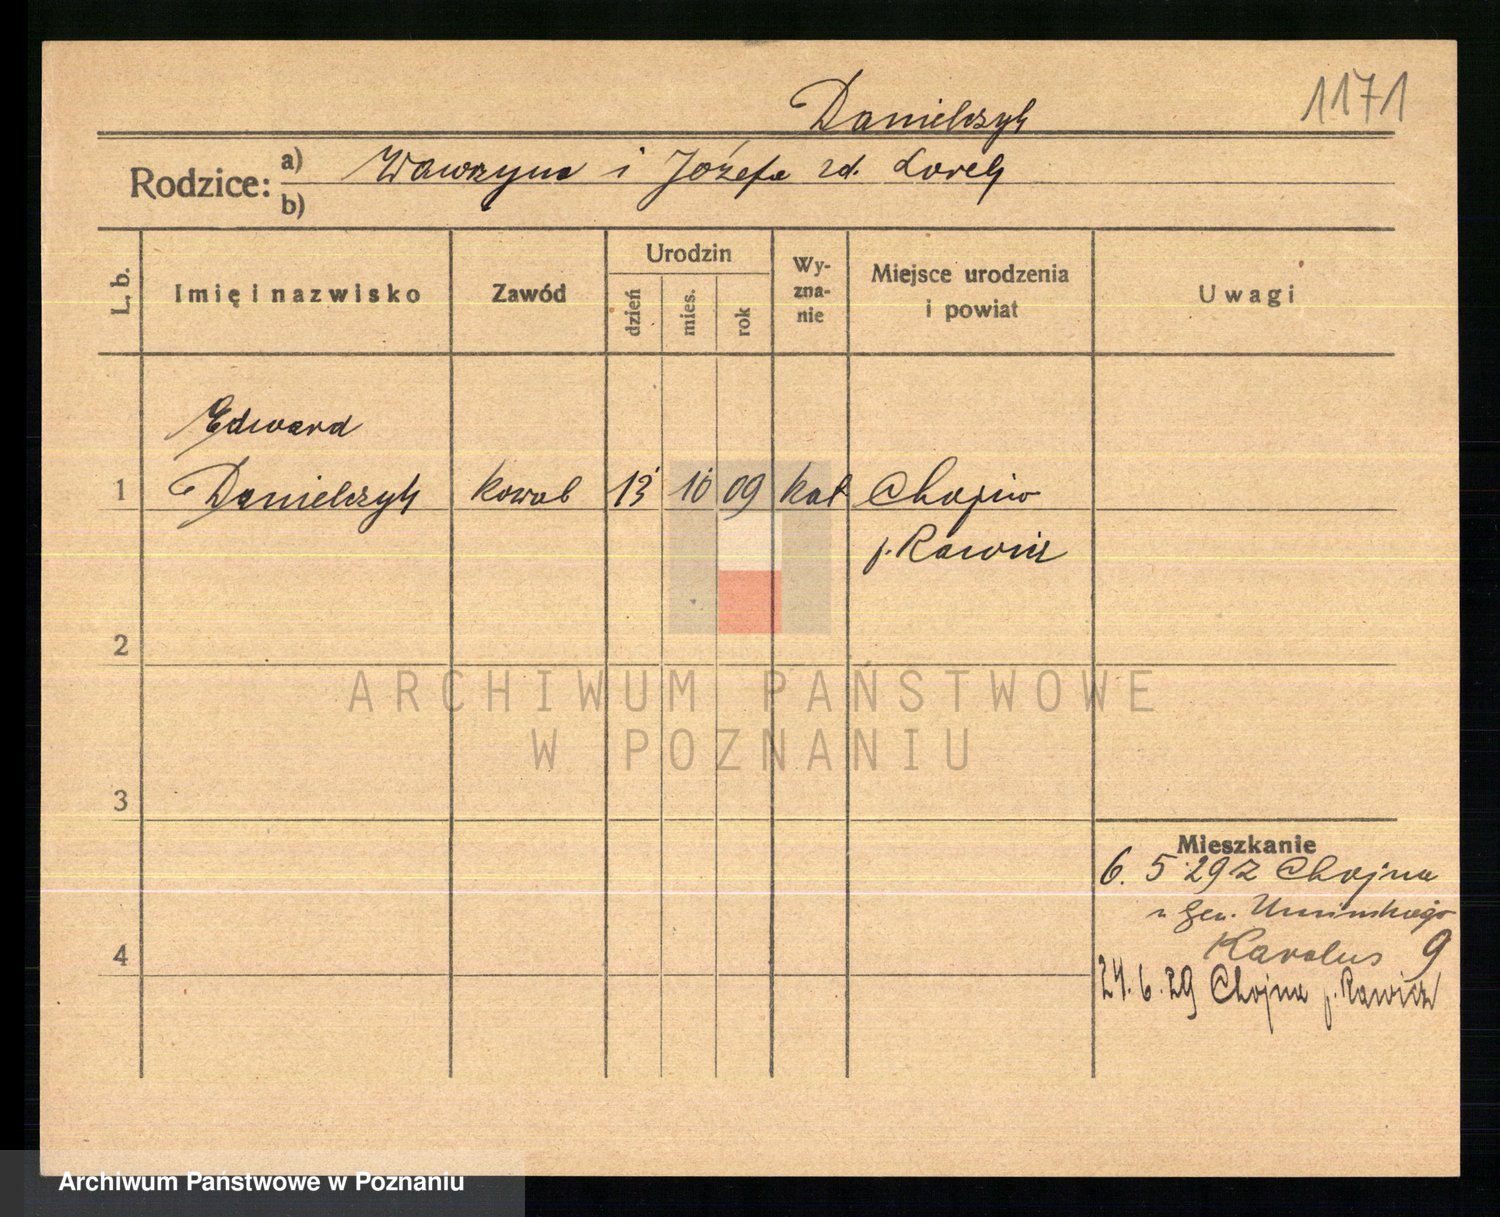 1171
Danielczyk
Rodzice: a) Wawrzyn i Józefa zd. Lorek
b)
L. b. Imię i nazwisko Zawód Urodzin dzień mies. rok Wy-zna-nie Miejsce urodzenia i powiat Uwagi
Edward
1 Danielczyk kowal 13 10 09 kat
p. Rawicz
2
ARCHIWUM PAŃSTWOWE
W POZNANIU
3
Mieszkanie
6. 5 29 z Chojna
Gen. Umińskiego
4 9
24. 6. 29 Chojna p. Rawicz
Archiwum Państwowe w Poznaniu